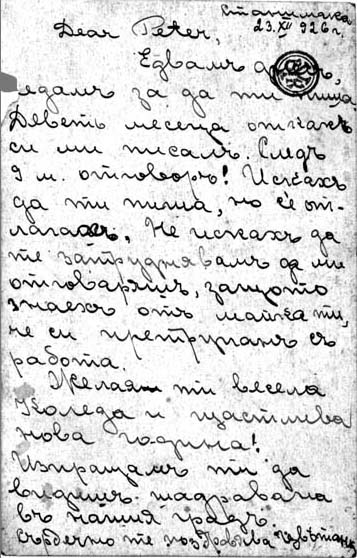 Станимака
23.XII 926 г.
Dear Peter,
Едвамъ
седамъ за да ти пиша
Деветь месеца откакъ
си ми писалъ. Следъ
9 м. отговоръ! Искахъ
да ти пиша, но се от-
лагахъ. Не искахъ да
те затруднявамъ да ми
отговаряшъ, защото
знаехъ отъ майка ти,
че си претрупанъ съ
работа.
Желая ти весела
Коледа и щастлива
нова година!
Изпращамъ ти да
видишъ шадравана
въ нашия градъ.
Сърдечно те поздравлява